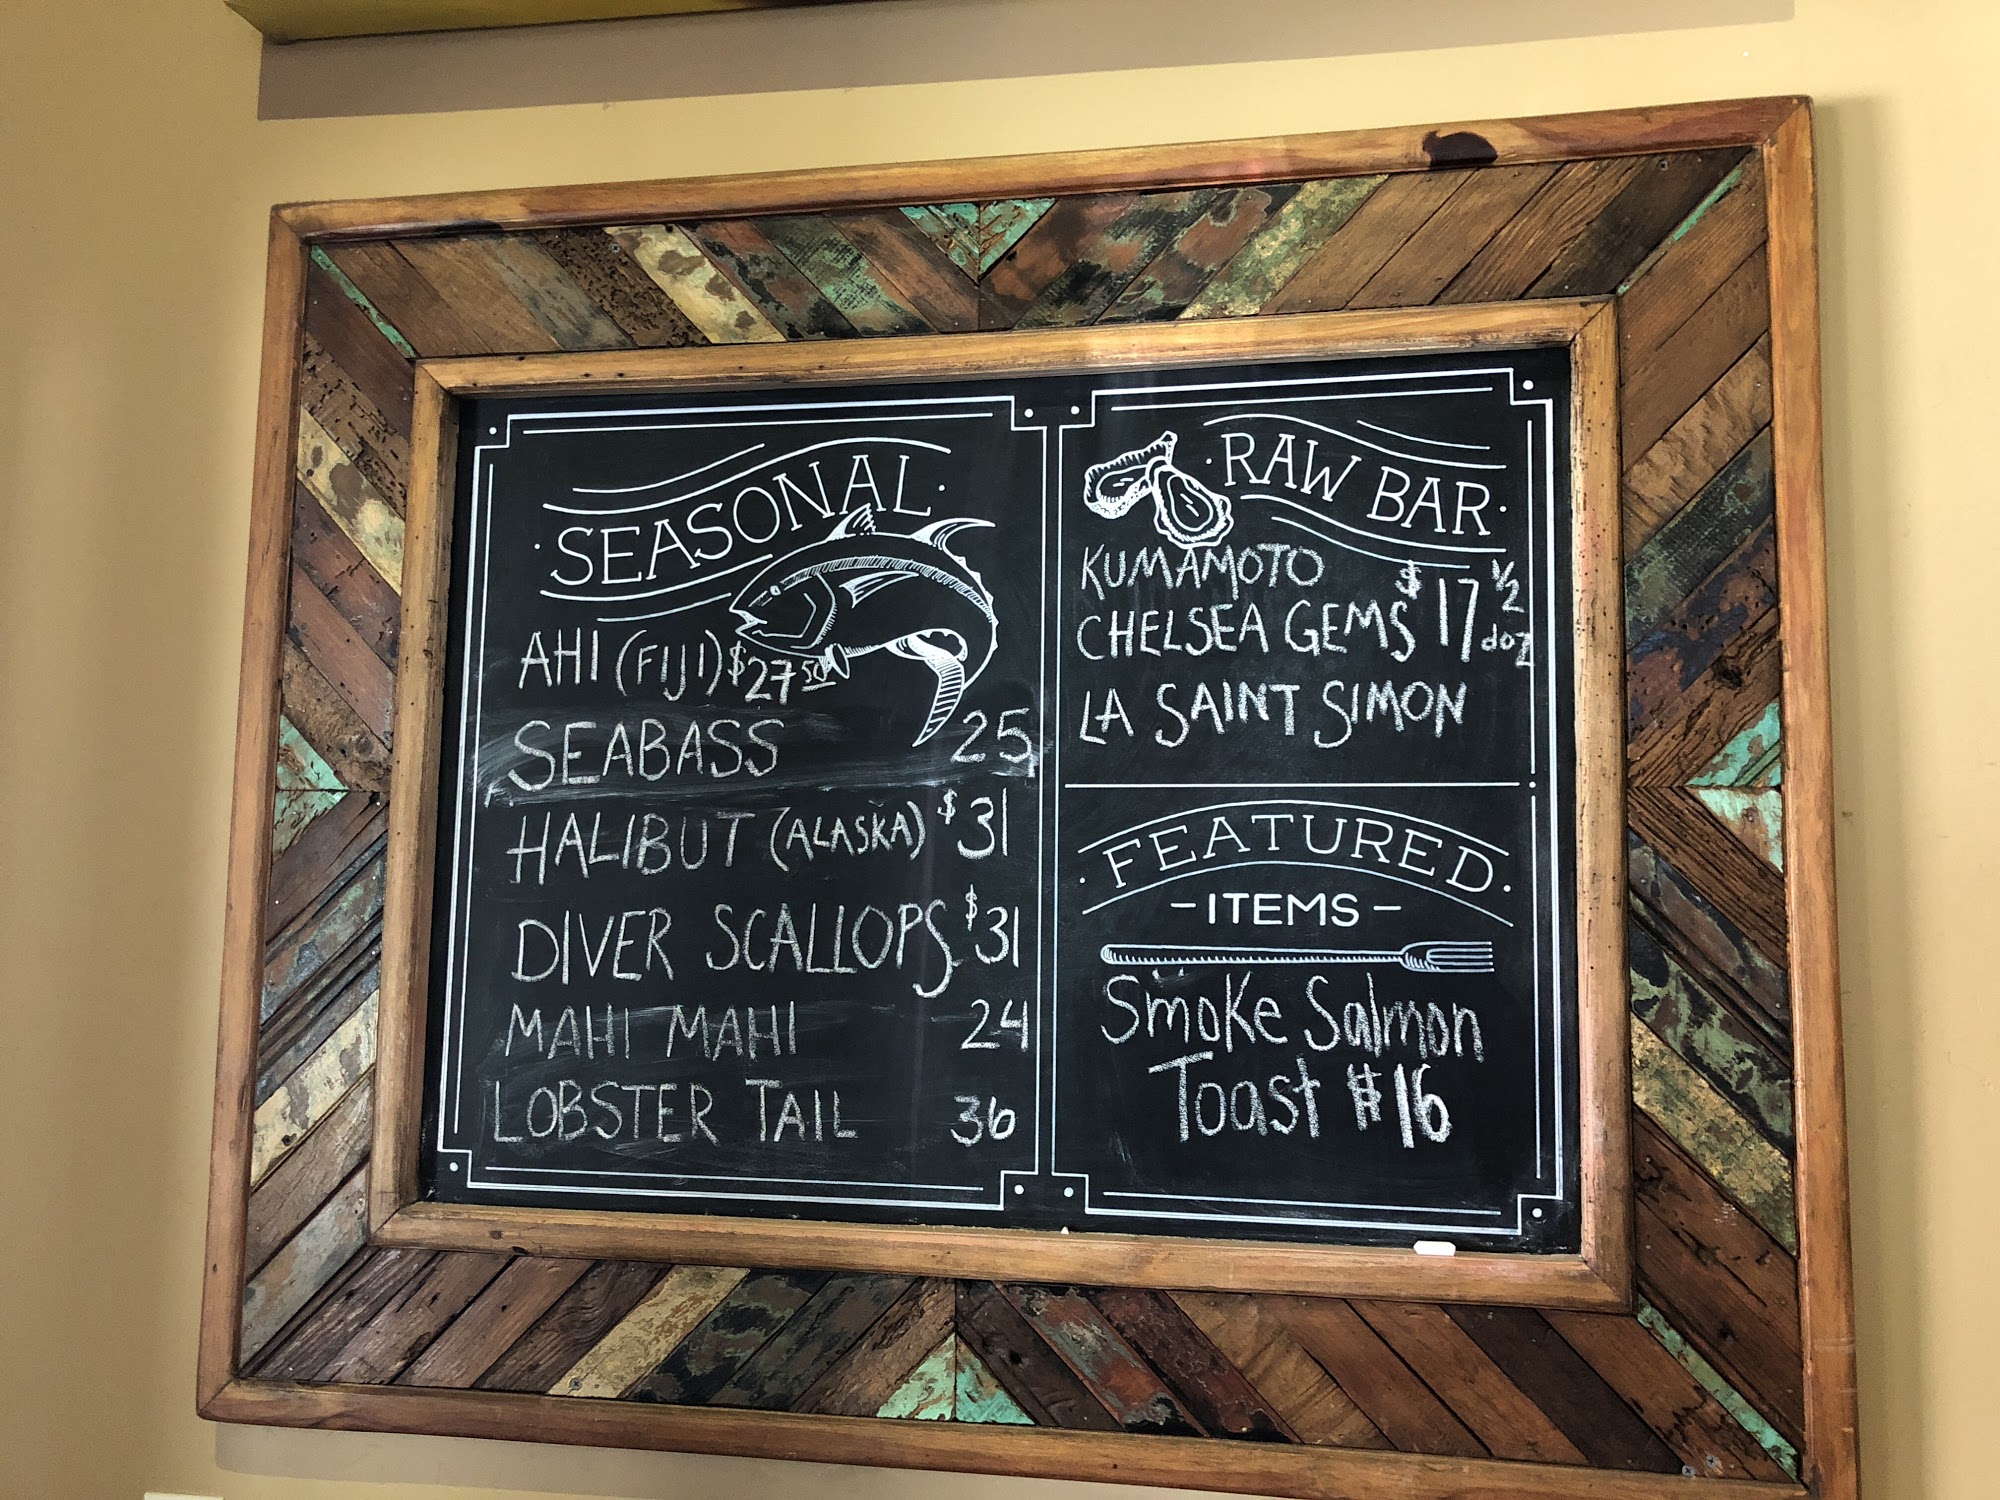 SEASONAL
AHI (FIJI) $27.50
SEABASS 25
HALIBUT (ALASKA) $31
DIVER SCALLOPS $31
MAHI MAHI 24
LOBSTER TAIL 36
RAW BAR
KUMAMOTO
CHELSEA GEMS $17 1/2 doz
LA SAINT SIMON
FEATURED
-ITEMS-
Smoke Salmon
Toast $16